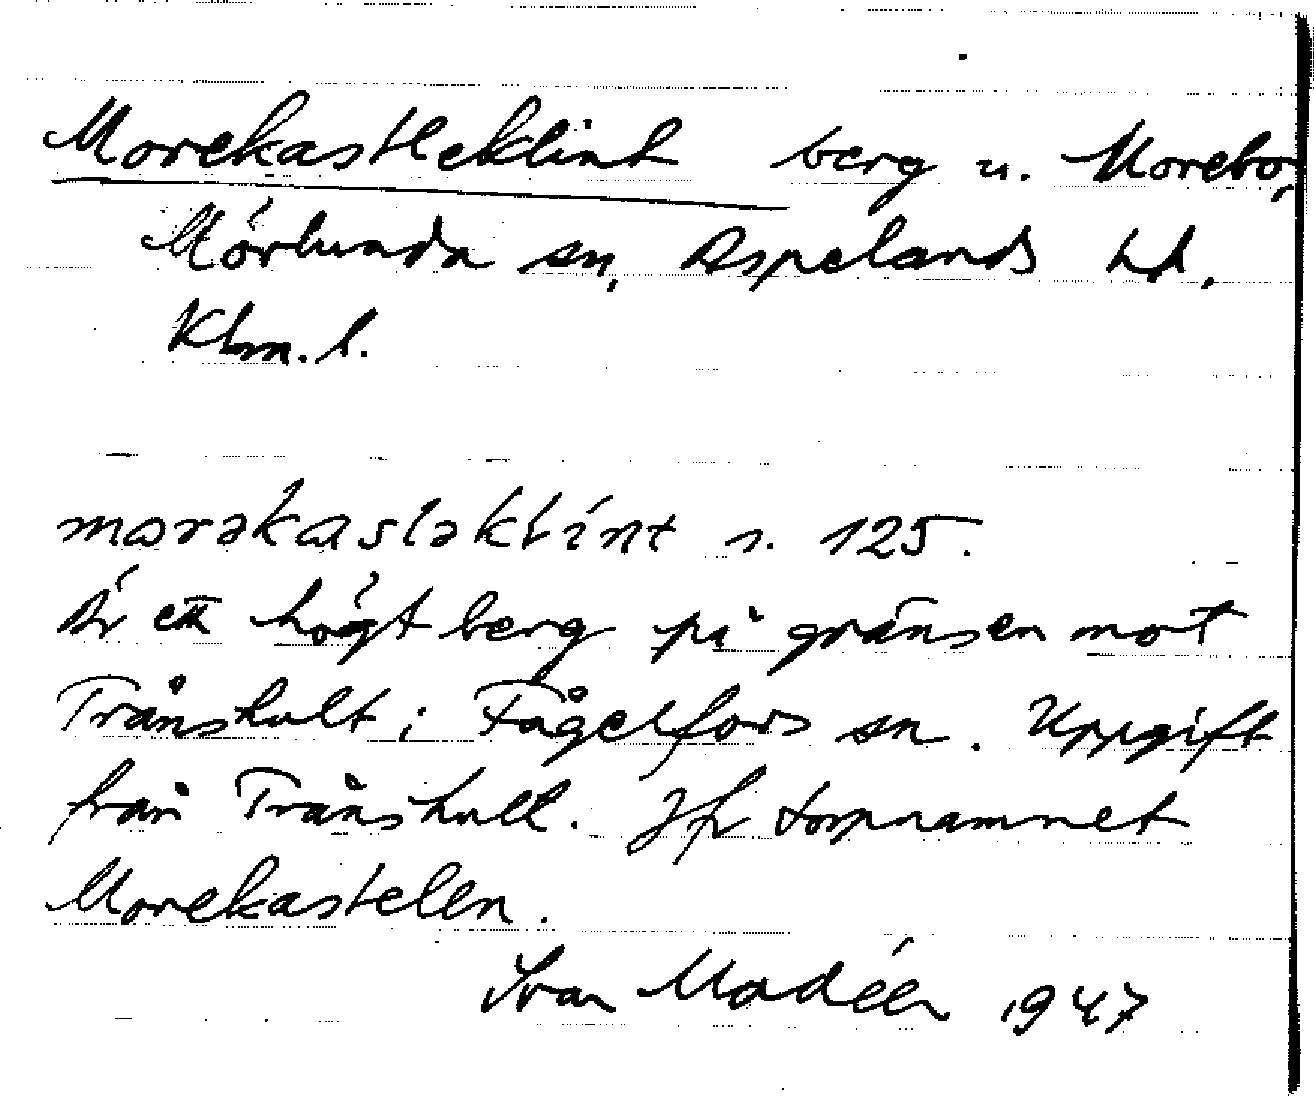 Morekastleklint berg u. Morebo,
Mörlunda sn, Aspelands hd.
Klm. l.
morəkasləklint s. 125.
Är ett högt berg på gränsen mot
Trånshult i Fågelfors sn. Uppgift
från Trånshult. Jfr torpnamnet
Morekastelen.
Ivar Modéer 1947